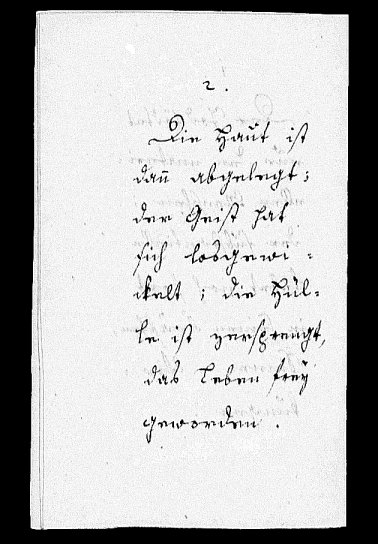 2.
Die Haut ist
dañ abgelegt;
der Geist hat
sich losgewi-
ckelt; die Hül-
le ist zersprengt,
das Leben frey
geworden.